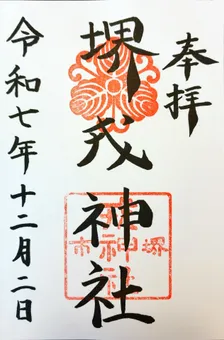 奉拝
堺戎神社
令和七年十二月二日
堺市